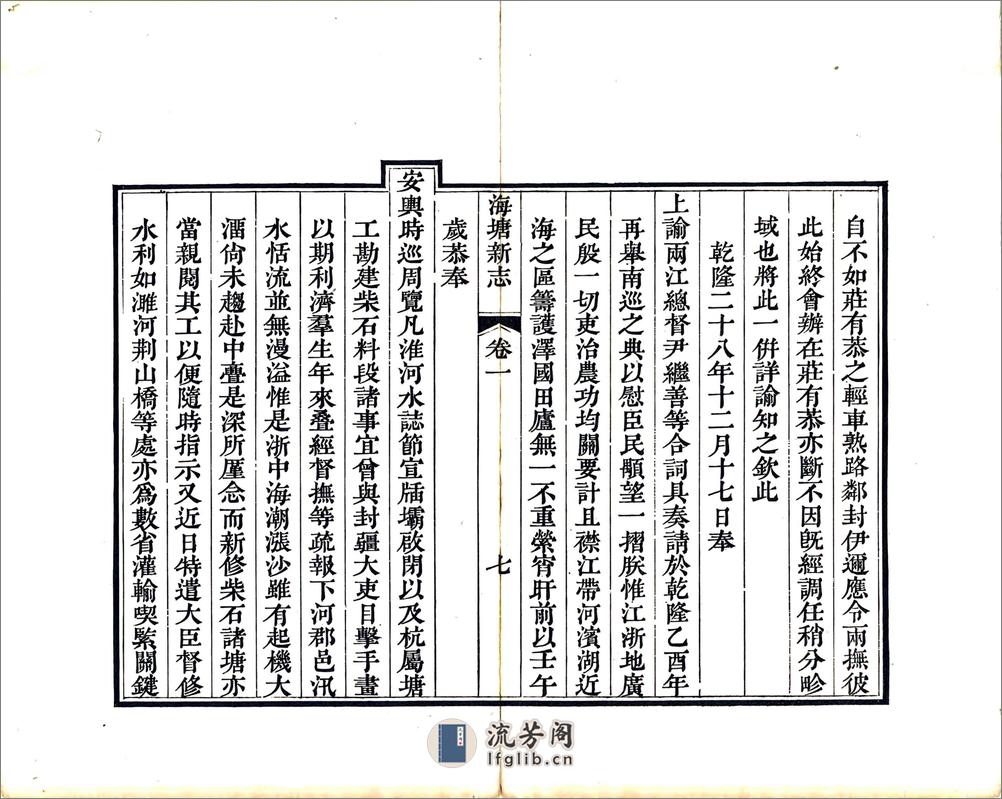 自不如莊有恭之輕車熟路鄰封伊邇應令兩撫彼
此始終會辦在莊有恭亦斷不因旣經調任稍分畛
域也將此一併詳諭知之欽此
乾隆二十八年十二月十七日奉
上諭兩江總督尹繼善等合詞具奏請於乾隆乙酉年
再舉南巡之典以慰臣民顒望一摺朕惟江浙地廣
民殷一切吏治農功均關要計且襟江帶河濱湖近
海之區籌護澤國田廬無一不重縈宵旰前以壬午
海塘新志 卷一 七
歲恭奉
安輿時巡周覽凡淮河水誌節宣牐壩啟閉以及杭屬塘
工勘建柴石料段諸事宜曾與封疆大吏目擊手畫
以期利濟羣生年來叠經督撫等疏報下河郡邑汛
水恬流並無漫溢惟是浙中海潮漲沙雖有起機大
溜尙未趨赴中亹是深所厪念而新修柴石諸塘亦
當親閱其工以便隨時指示又近日特遣大臣督修
水利如濉河荆山橋等處亦爲數省灌輸喫緊關鍵
流芳阁
lfglib.cn